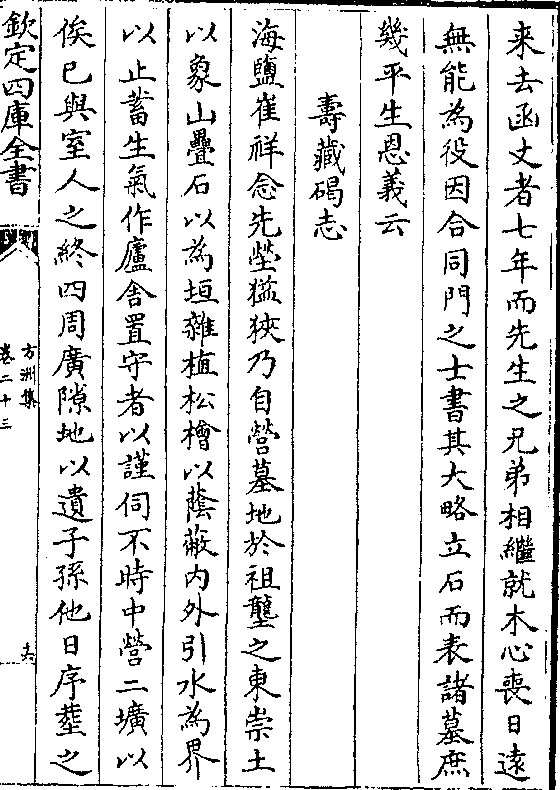 来去函丈者七年而先生之兄弟相繼就木心喪日逺
無能為役因合同門之士書其大略立石而表諸墓庶
幾平生恩義云
壽藏碣志
海鹽崔祥念先塋猛狹乃自營墓地於祖壟之東崇土
以象山疊石以為垣雜植松檜以䕃蔽内外引水為界
以止蓄生氣作廬舎置守者以謹伺不時中營二壙以
俟已與室人之終四周廣隙地以遺子孫他日序塟之
欽定四庫全書
方洲集
卷二十三